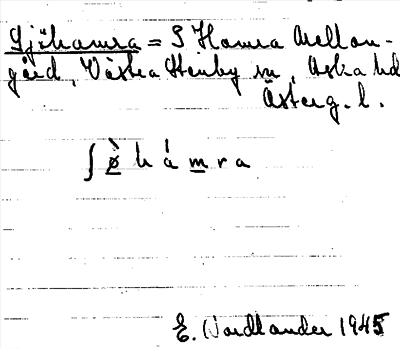 Sjöhamra = S Hamra Mellan-
gård, Västra Stenby sn, Aska hd
Österg. l.
ʃø̀hámra
E. Nordlander 1945